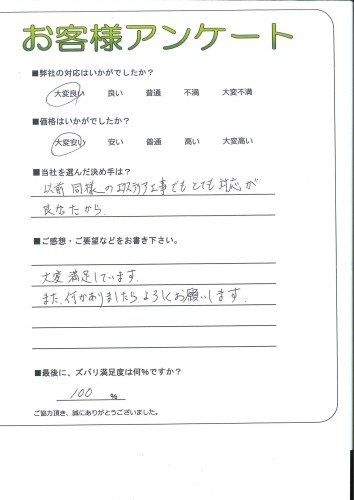 お客様アンケート
■弊社の対応はいかがでしたか？
大変良い 良い 普通 不満 大変不満
■価格はいかがでしたか？
大変安い 安い 普通 高い 大変高い
■当社を選んだ決め手は？
以前同様のエクステリア工事でもとても対応が
良なたから。
■ご感想・ご要望などをお書き下さい。
大変満足しています。
また、何かありましたらよろしくお願いします。
■最後に、ズバリ満足度は何％ですか？
100 ％
ご協力頂き、誠にありがとうございました。